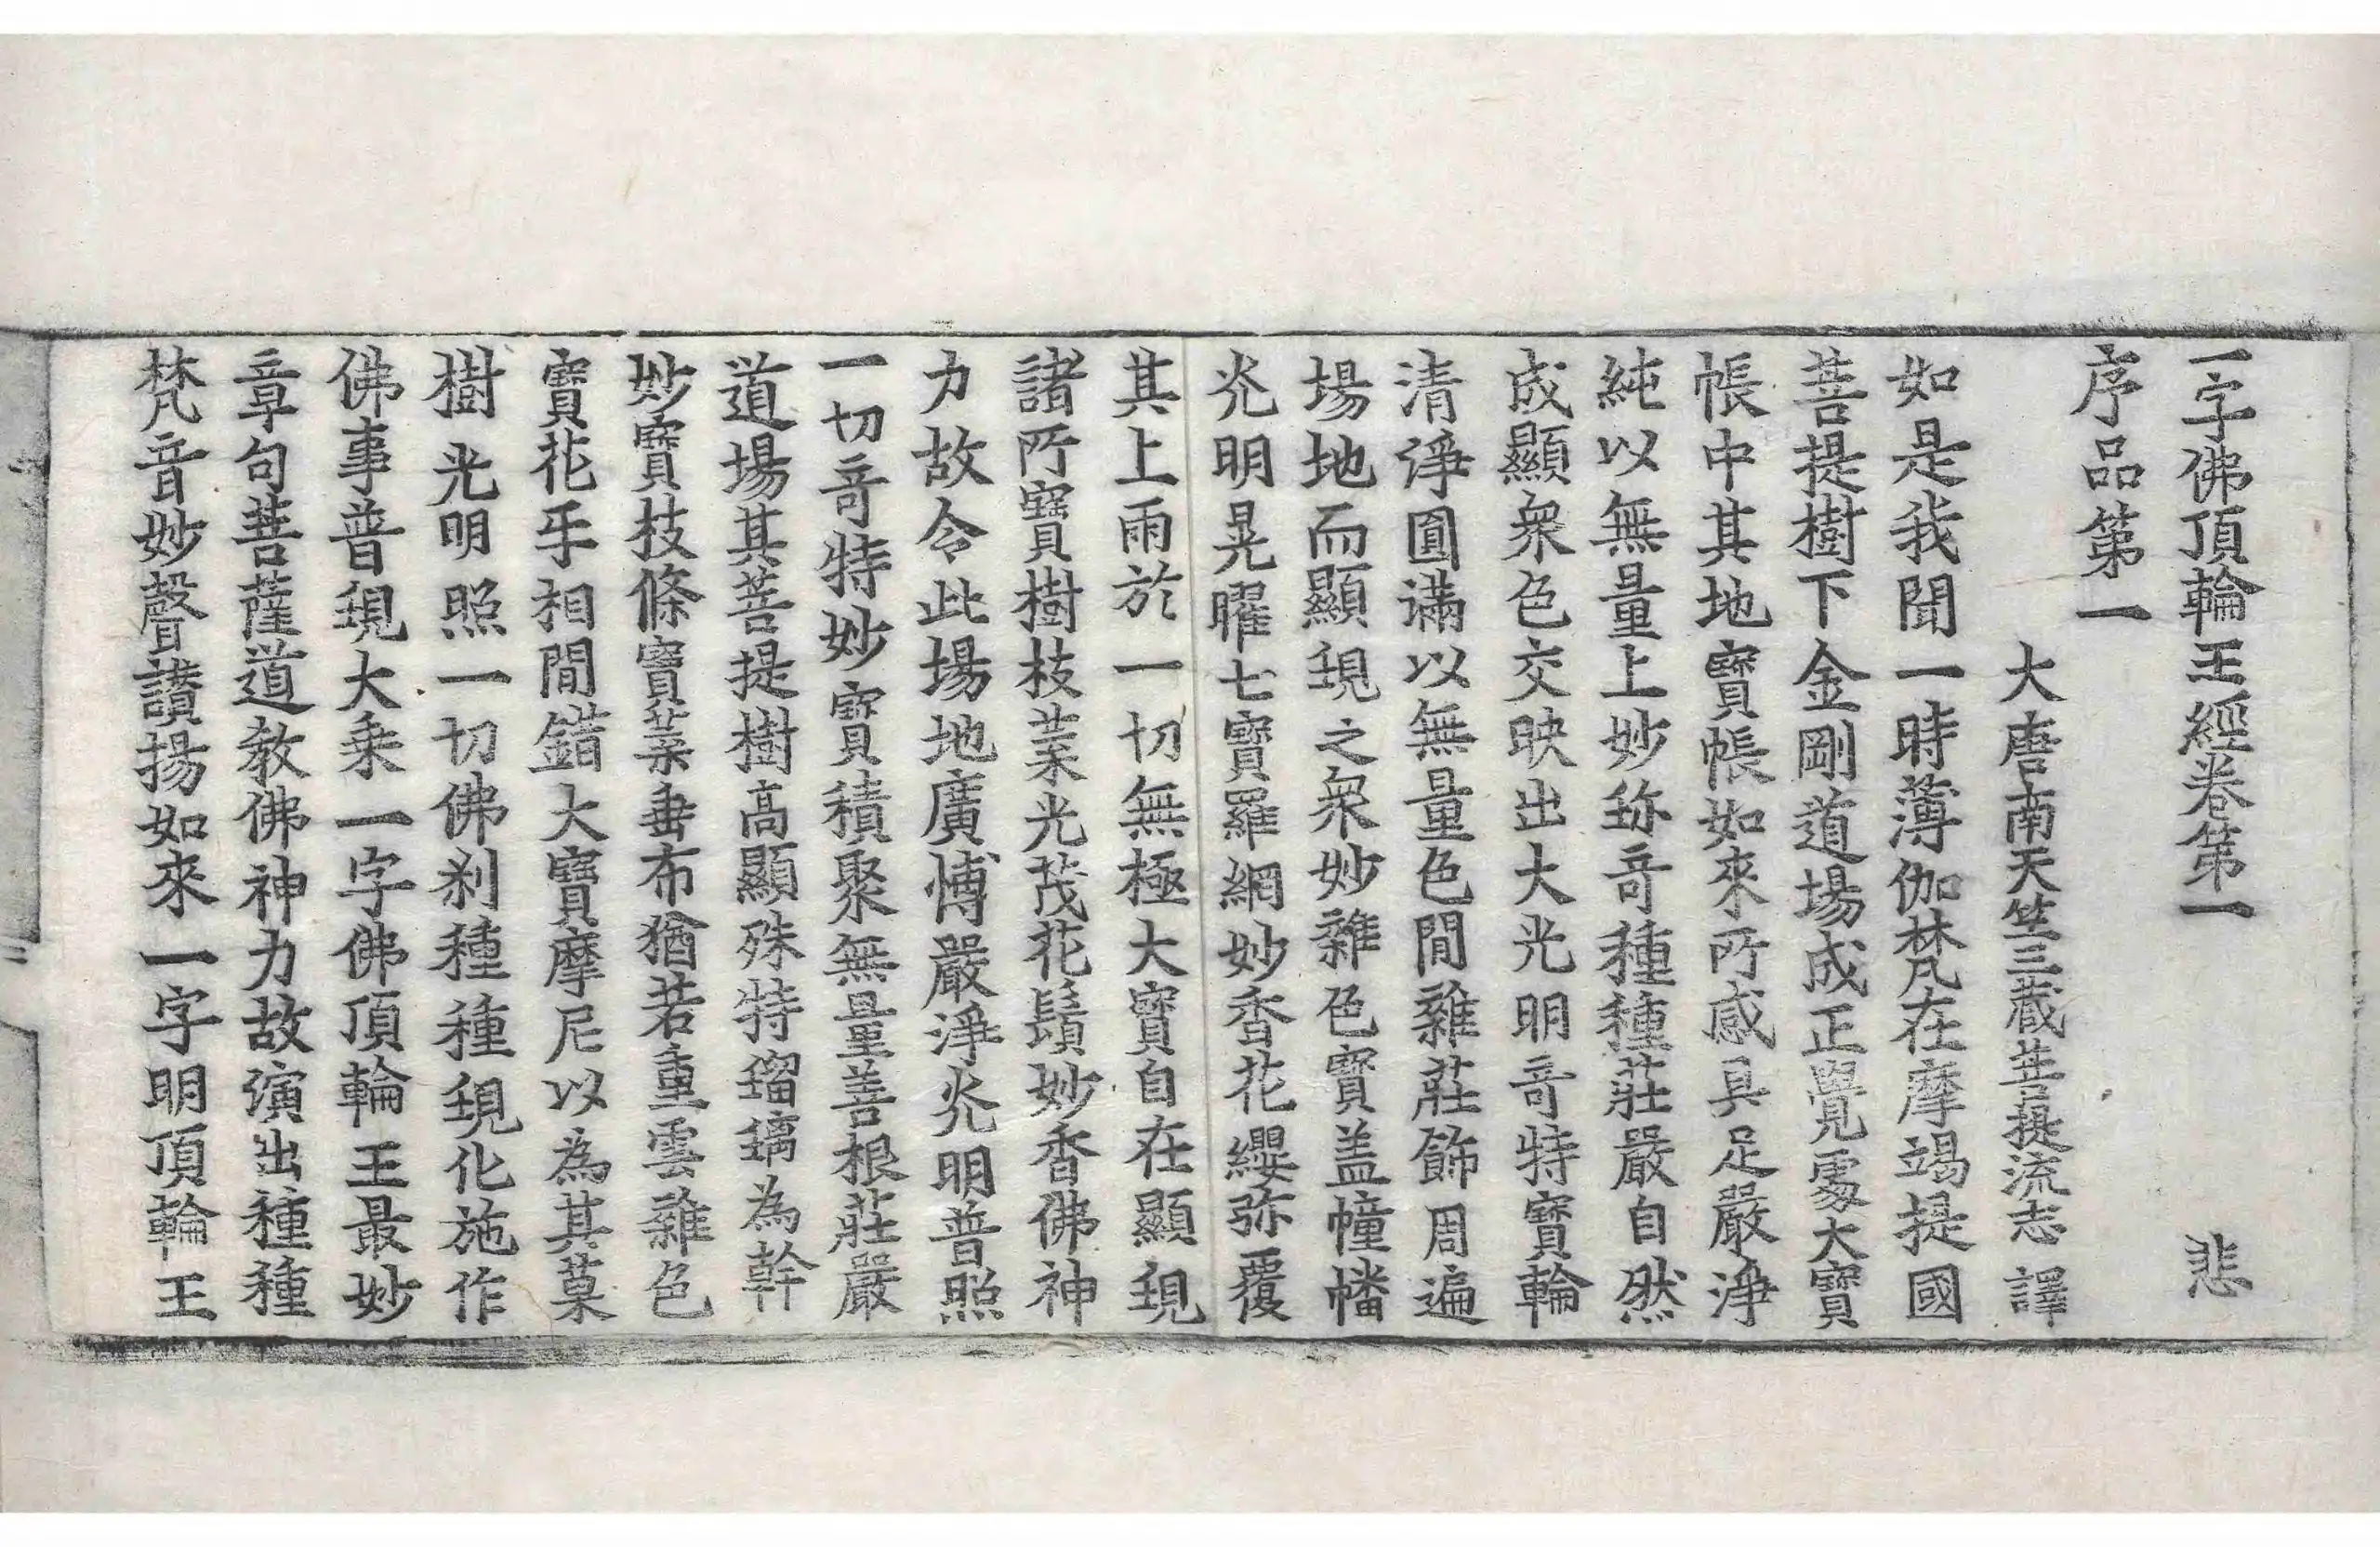 一字佛頂輪王經卷第一 悲
序品第一
大唐南天竺三藏菩提流志 譯
如是我聞一時薄伽梵在摩竭提國
菩提樹下金剛道場成正覺處大寶
帳中其地寶帳如來所感具足嚴淨
純以無量上妙珎竒種種莊嚴自然
成顯衆色交映出大光明竒特寶輪
清淨圓滿以無量色間雜莊飾周遍
場地而顯現之衆妙雜色寶盖幢幡
光明晃曜七寶羅網妙香花纓弥覆
其上雨於一切無極大寶自在顯現
諸所寶樹枝葉光茂花鬚妙香佛神
力故令此場地廣博嚴淨光明普照
一切竒特妙寶積聚無量善根莊嚴
道場其菩提樹高顯殊特瑠璃為幹
妙寶枝條寶葉垂布猶若重雲雜色
寶花㸦相間錯大寶摩尼以為其菓
樹光明照一切佛刹種種現化施作
佛事普現大乗一字佛頂輪王最妙
章句菩薩道教佛神力故演出種種
梵音妙聲讃揚如來一字明頂輪王